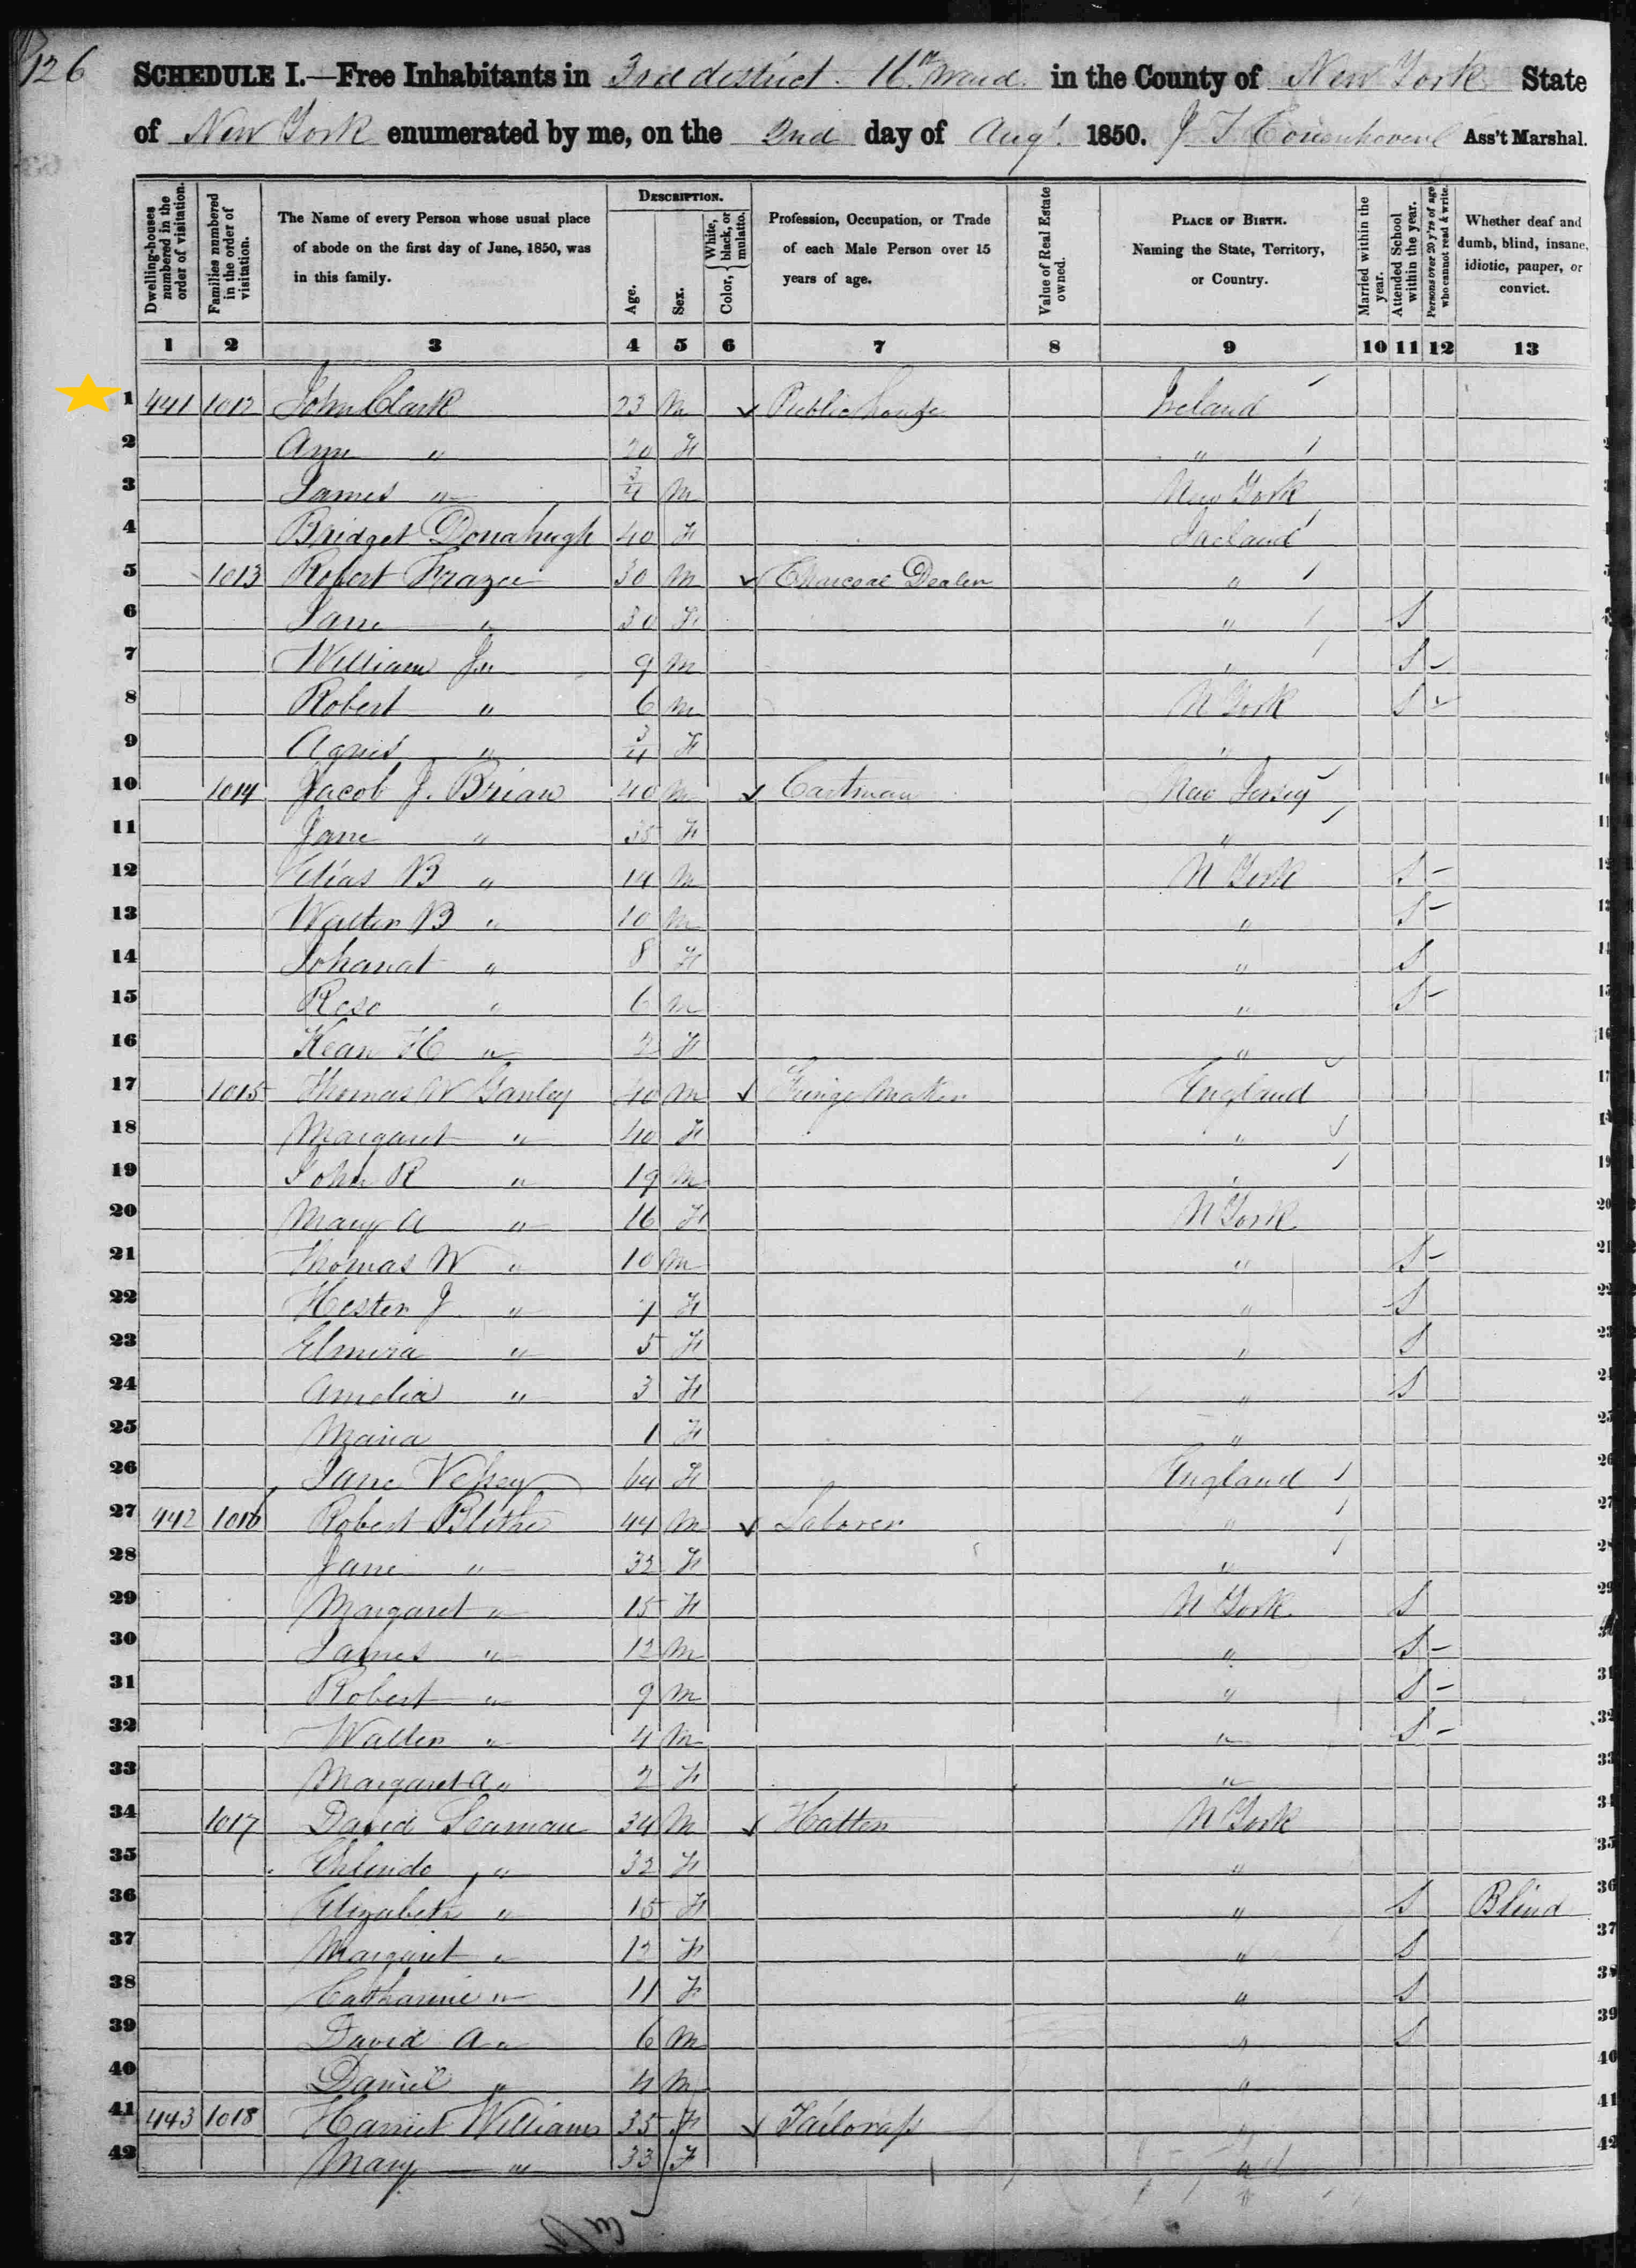 126
SCHEDULE I.—Free Inhabitants in 3rd district 16th Ward in the County of New York State
of New York enumerated by me, on the 2nd day of Augt. 1850. J T Ass't Marshal.
Dwelling-houses numbered in the order of visitation.
Families numbered in the order of visitation.
The Name of every Person whose usual place of abode on the first day of June, 1850, was in this family.
DESCRIPTION.
Age.
Sex.
Color, { White, black, or mulatto.
Profession, Occupation, or Trade of each Male Person over 15 years of age.
Value of Real Estate owned.
PLACE OF BIRTH. Naming the State, Territory, or Country.
Married within the year.
Attended School within the year.
Persons over 20 y'rs of age who cannot read & write.
Whether deaf and dumb, blind, insane, idiotic, pauper, or convict.
1 2 3 4 5 6 7 8 9 10 11 12 13
1 441 1012 John Clark 23 M Public house Ireland
2 Ann " 20 F "
3 James " 3/4 M New York
4 Bridget Donahugh 40 F Ireland
5 1013 Robert Frazer 30 M Charcoal Dealer "
6 Jane " 30 F " S
7 William J " 9 M " S
8 Robert " 6 M N York S
9 Agnes " 3/4 F "
10 1014 Jacob J. Brian 40 M Cartman New Jersey
11 Jane " 35 F "
12 Elias B " 14 M N York S
13 Walter B " 10 M " S
14 Johanat " 8 F " S
15 " 6 M " S
16 Kean H " 2 F "
17 1015 Thomas W Ganley 40 M Fringe Maker England
18 Margaret " 40 F "
19 John R " 19 M "
20 Mary A " 16 F N York
21 Thomas W " 10 M " S
22 Hester J " 7 F " S
23 Elmira " 5 F " S
24 Amelia " 3 F " S
25 Maria 1 F "
26 Jane Vessey 64 F England
27 442 1016 Robert Blithe 44 M Laborer "
28 Jane " 32 F "
29 Margaret " 15 F N York S
30 James " 12 M " S
31 Robert " 9 M " S
32 Walter " 4 M " S
33 Margaret A " 2 F "
34 1017 David Seaman 34 M Hatter N York
35 " 32 F "
36 Elizabeth " 15 F " S Blind
37 Margaret " 12 F " S
38 Catharine " 11 F " S
39 David A " 6 M " S
40 Daniel " 4 M "
41 443 1018 Harriet Williams 35 F Tailoress "
42 Mary " 33 F "